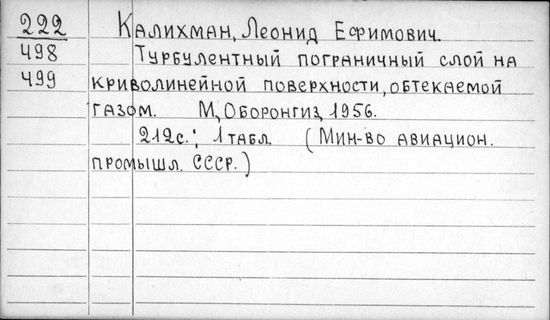 222 Калихман, Леонид Ефимович.
498 Турбулентный пограничный слой на
499 криволинейной поверхности, обтекаемой
газом. М, Оборонгиз, 1956.
212с.; 1 табл. (Мин-во авиацион.
промышл. СССР.)